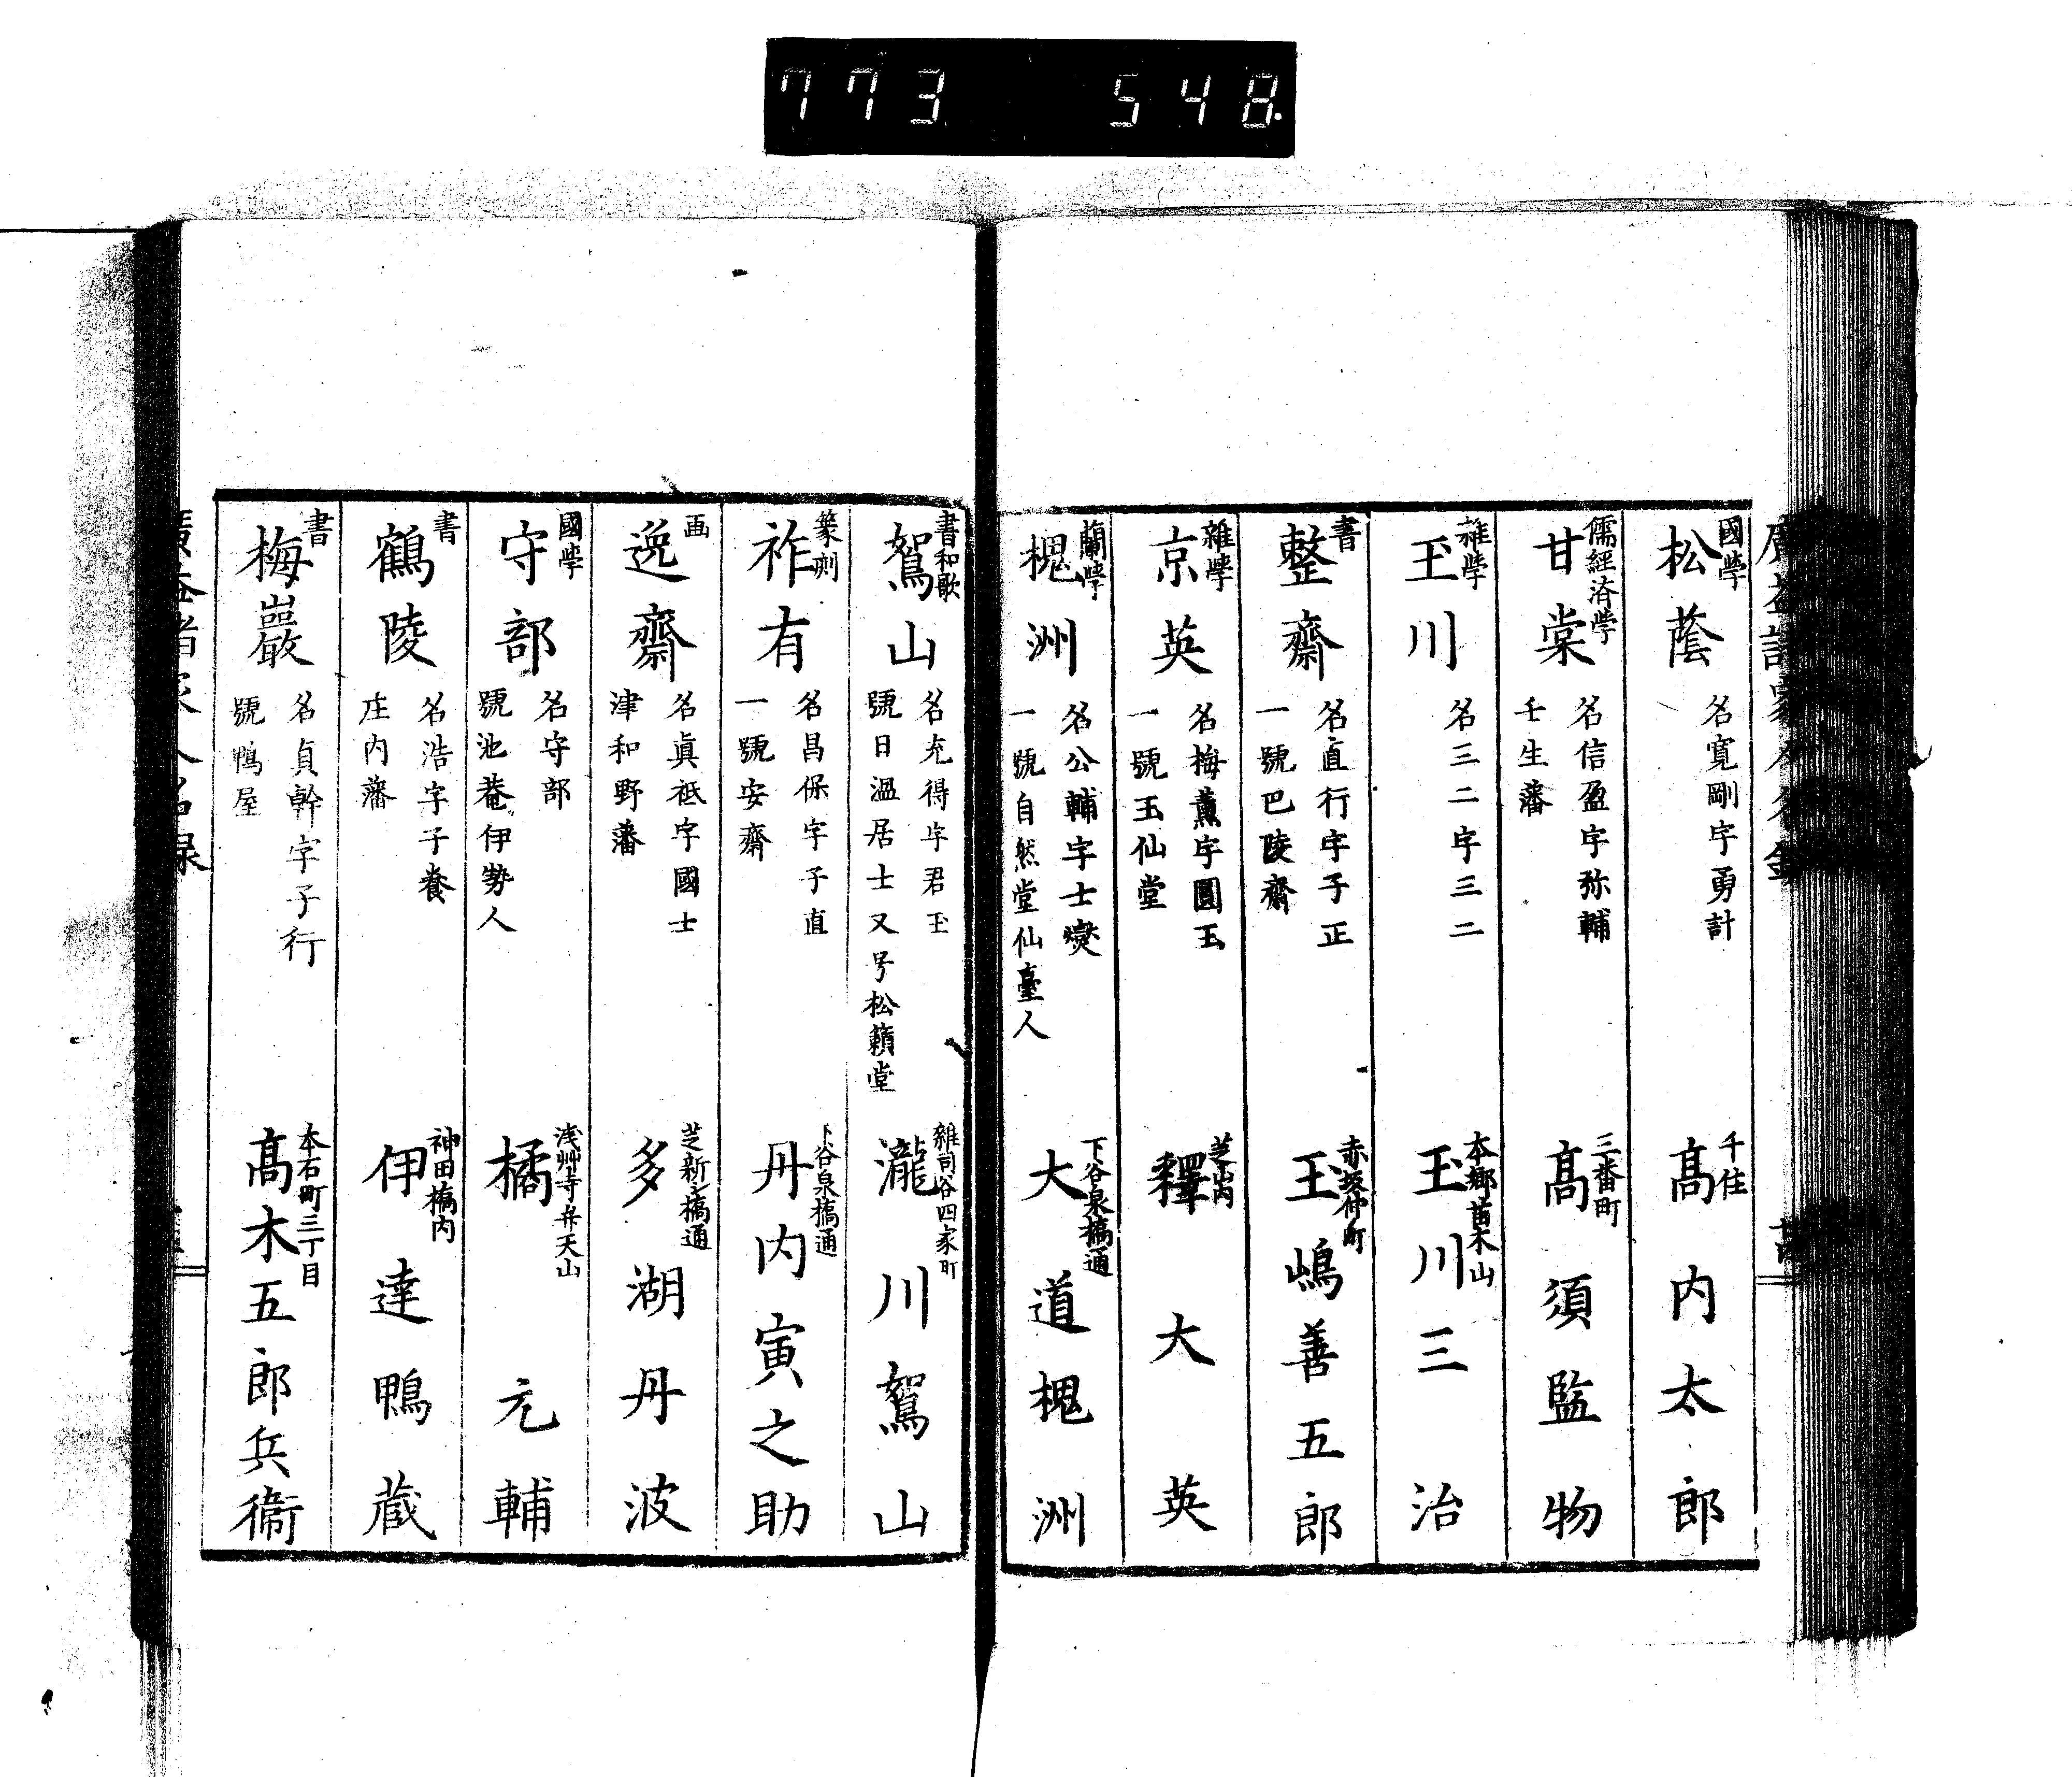 773 548.
國学
松蔭
名寛剛字勇計
千住
髙内太郎
儒経済学
甘棠
名信盈字弥輔
壬生藩
三番町
髙須監物
雑学
玉川
名三二字三二
本郷苗木山
玉川三治
書
整齋
名直行字子正
一號巴陵齋
赤坂仲町
王嶋善五郎
雑学
京英
名梅薫字圓玉
一號玉仙堂
芝山内
釋大英
蘭学
槐洲
名公輔字士燮
一號自然堂仙臺人
下谷泉橋通
大道槐洲
書和歌
鴛山
名充得字君玉
號日温居士又号松籟堂
雜司谷四家町
瀧川鴛山
篆刻
祚有
名昌保字子直
一號安齋
下谷泉橋通
丹内寅之助
画
逸齋
名眞祗字國士
津和野藩
芝新シ橋通
多湖丹波
國学
守部
名守部
號池菴伊勢人
浅艸寺弁天山
橘元輔
書
鶴陵
名浩字子養
庄内藩
神田橋内
伊達鴨蔵
書
梅巖
名貞幹字子行
號鴨屋
本石町三丁目
髙木五郎兵衞